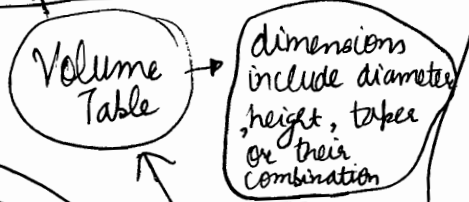 Volume
Table
dimensions
include diameter
, height, taper
or their
combination